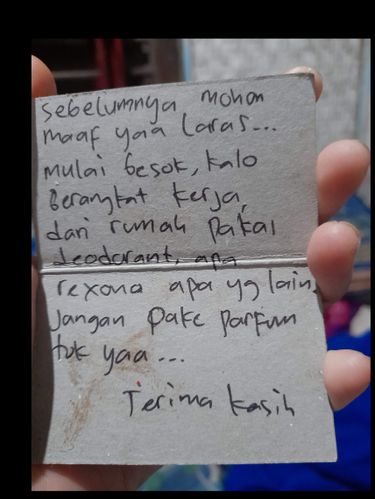 sebelumnya mohon
maaf yaa Laras...
mulai besok, kalo
berangkat kerja,
dari rumah pakai
deodorant, apa
rexona apa yg lain,
Jangan pake parfum
tok yaa...
Terima kasih